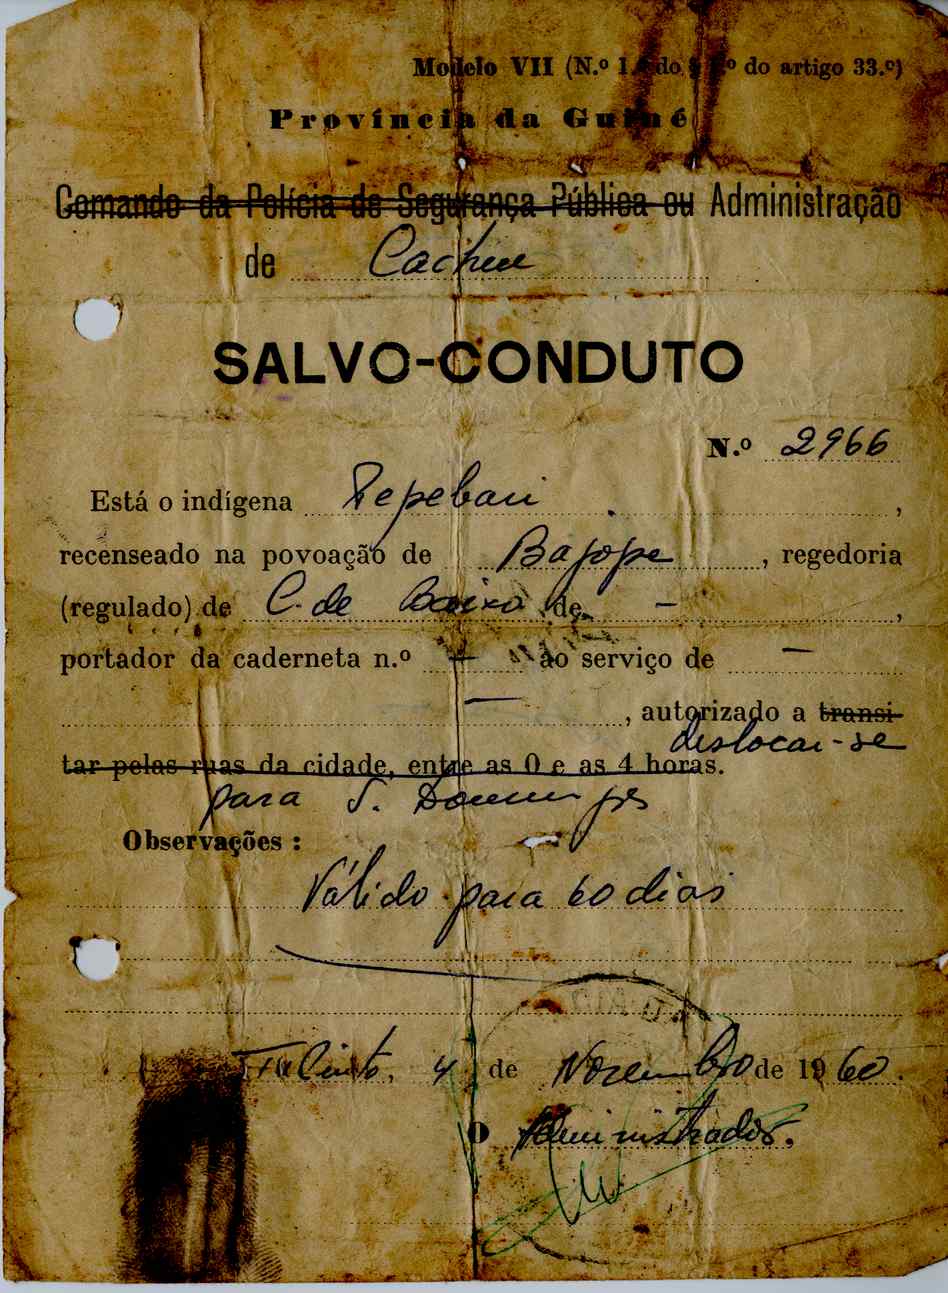 Modelo VII (N.º 1.º do § º do artigo 33.º)
Província da Guiné
Comando da Polícia de Segurança Pública ou Administração
de Cacheu
SALVO-CONDUTO
N.º 2966
Está o indígena Pepebari ,
recenseado na povoação de Bajope , regedoria
(regulado) de C. de Baixo de - ,
portador da caderneta n.º - ao serviço de -
- , autorizado a transi-
deslocar-se
tar pelas ruas da cidade, entre as 0 e as 4 horas.
para S. Domingos
Observações :
Válido para 60 dias
4 de Novembro de 1960.
O Administrador.